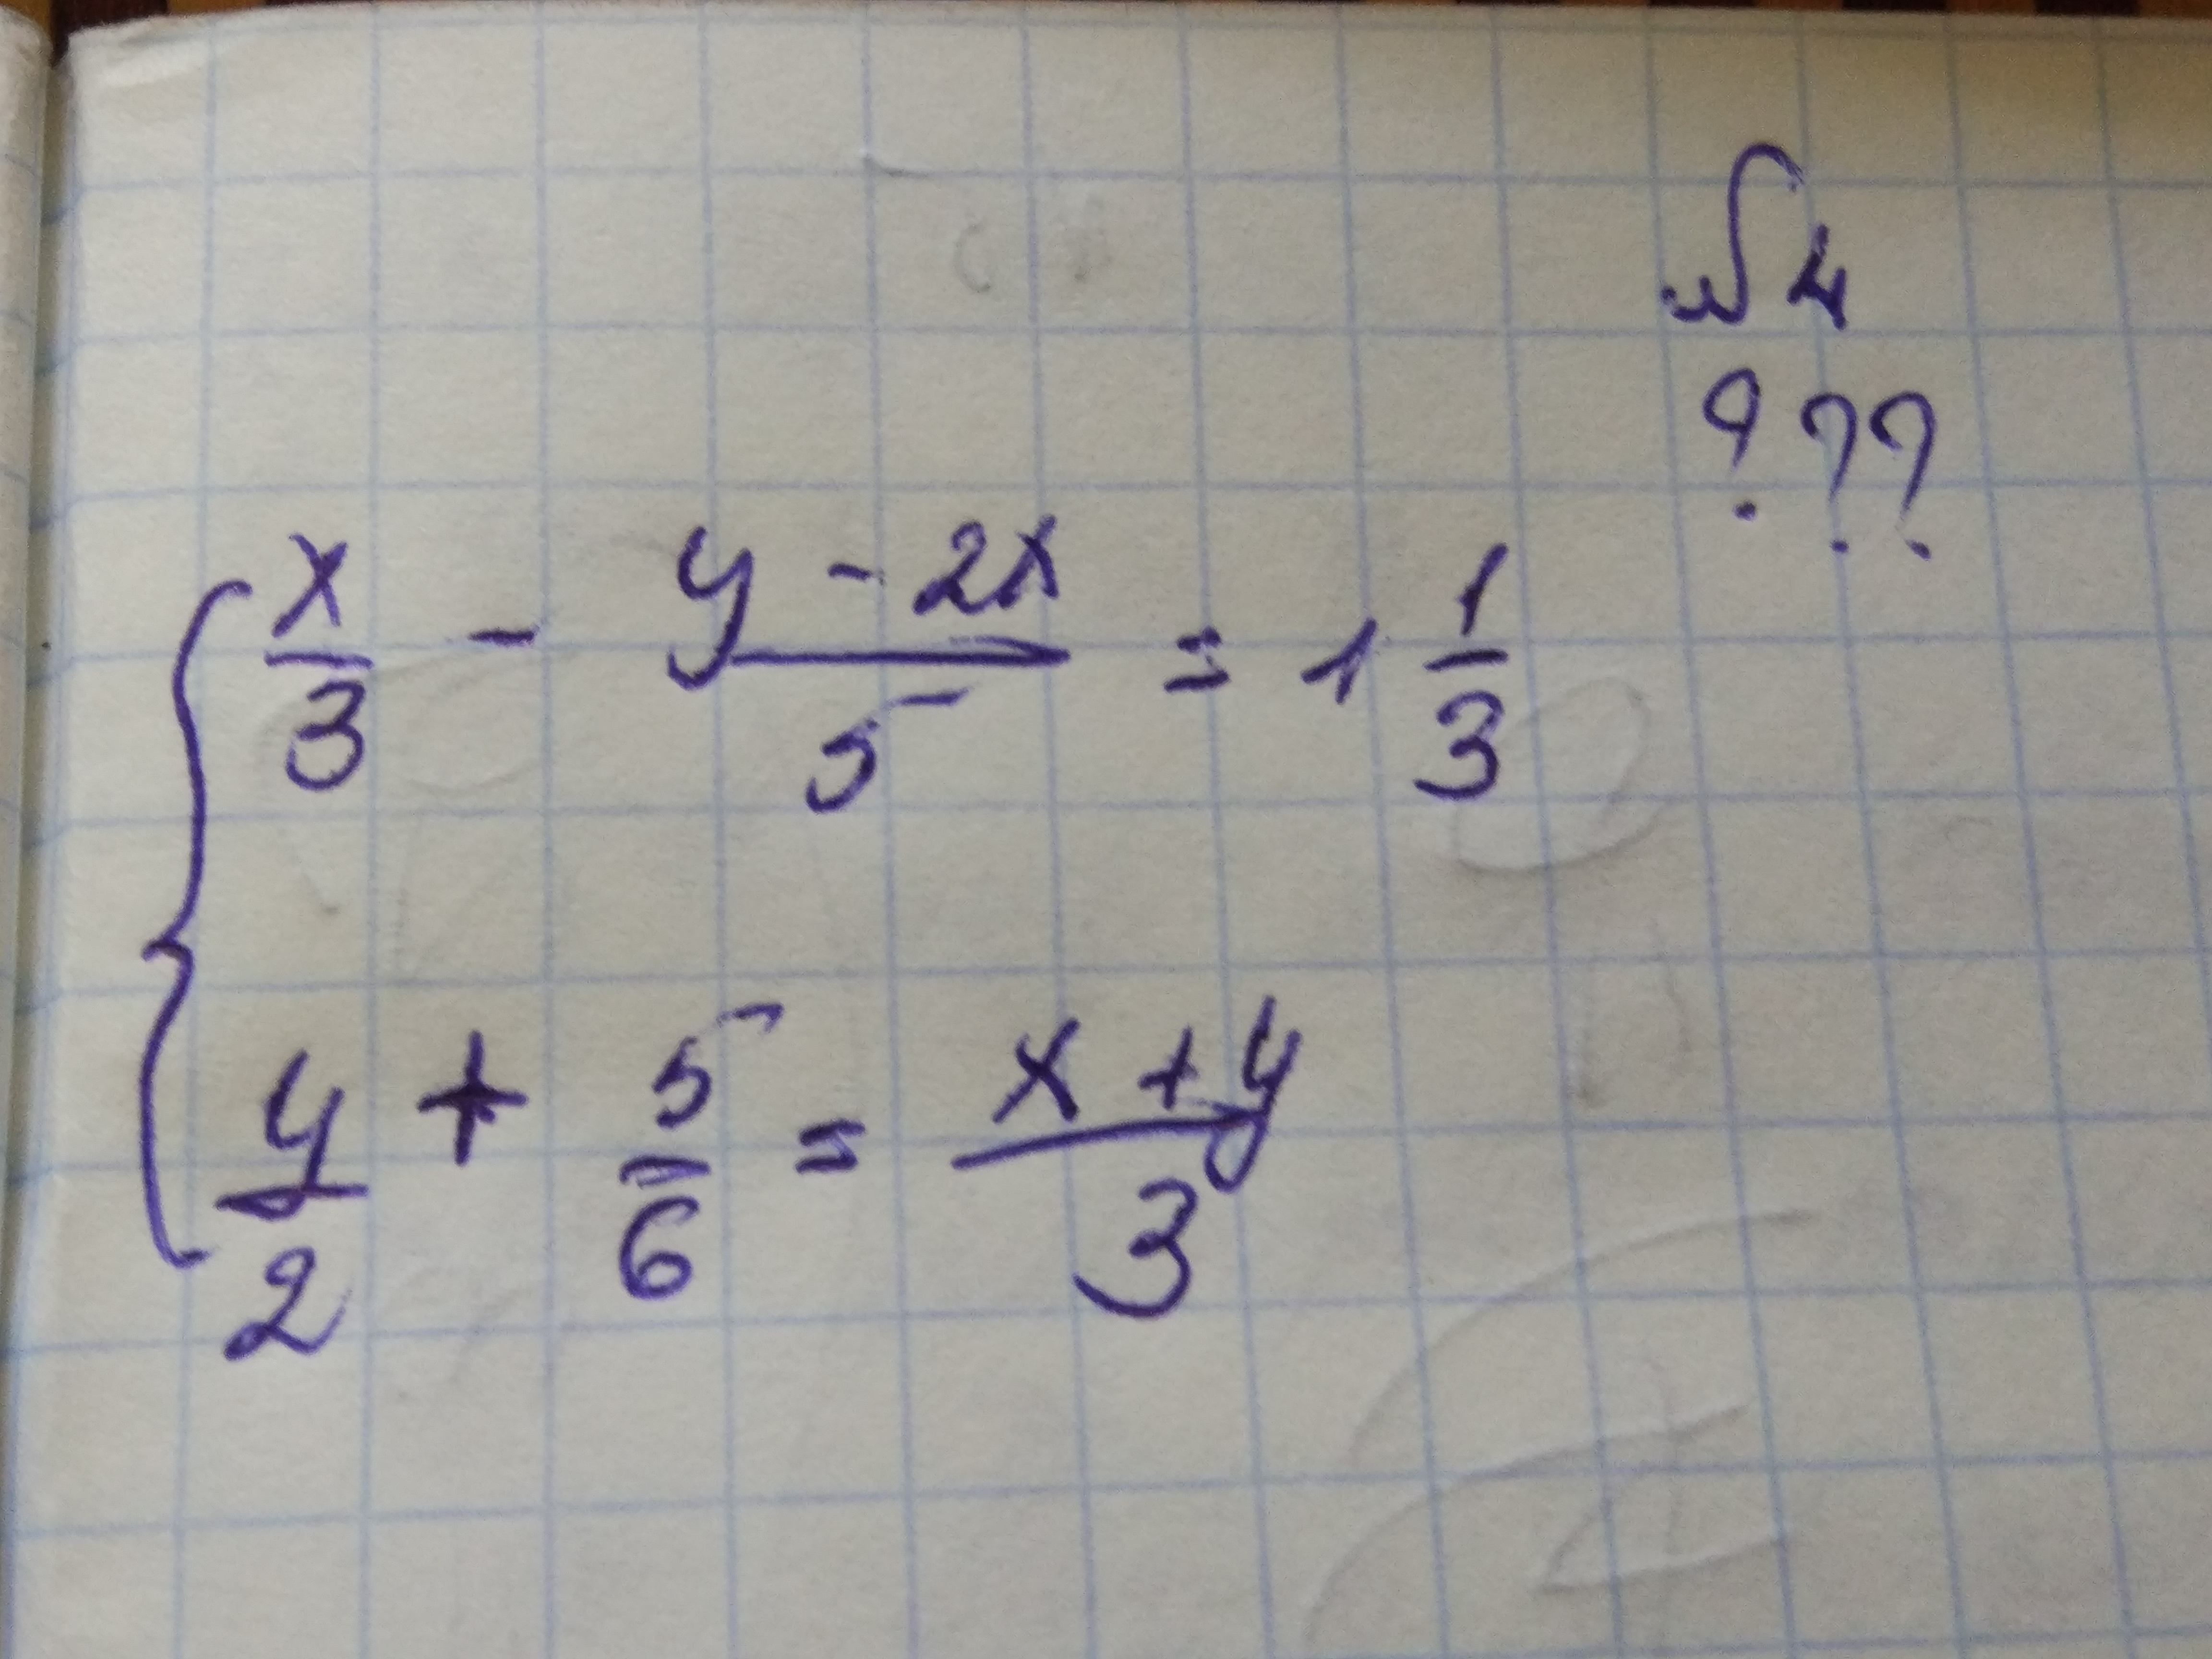 ???
x/3 - (y - 2x)/5 = 1 1/3
y/2 + 5/6 = (x + y)/3